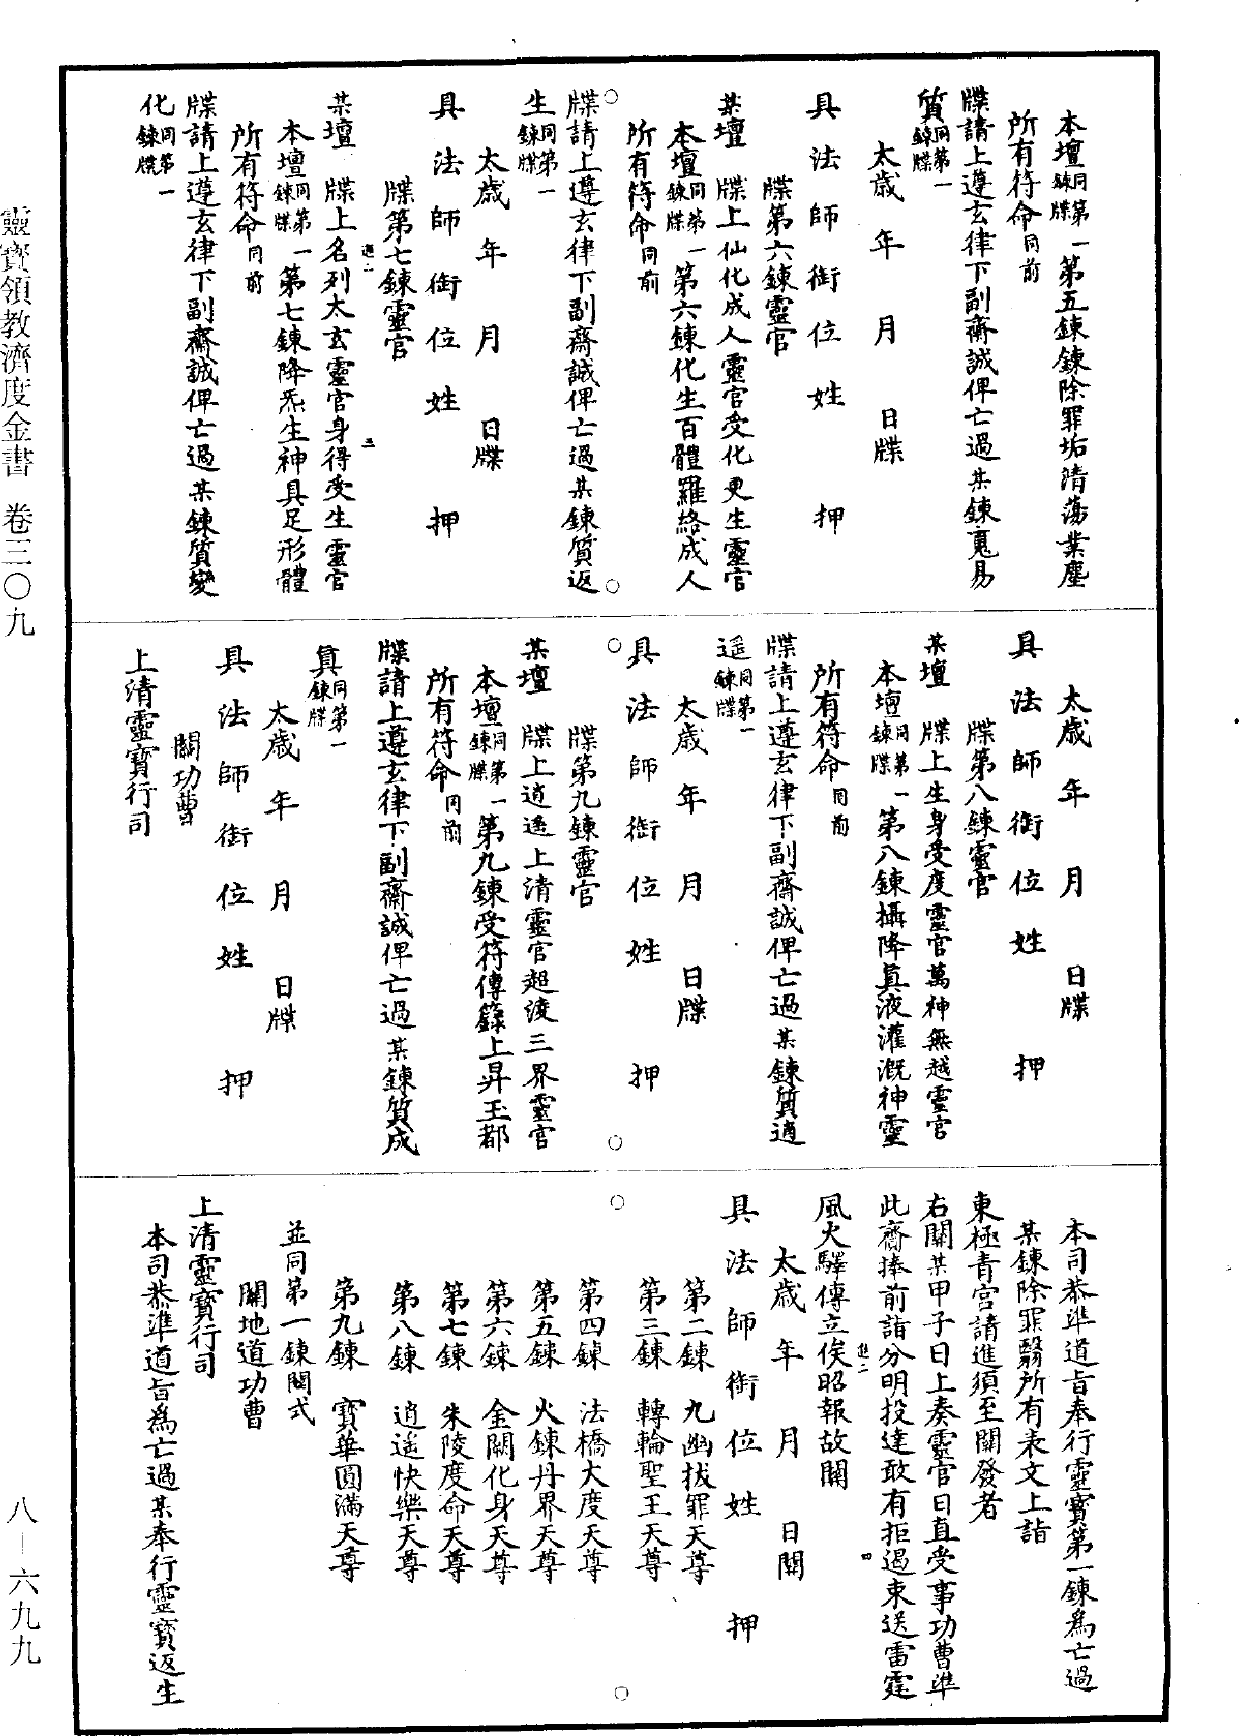 本壇同第一鍊牒第五鍊鍊除罪垢清蕩業塵
所有符命同前
牒請上遵玄律下副齋誠俾亡過某鍊䰟易
質同第一鍊牒
太歲 年 月 日牒
具法師銜位姓 押
牒第六鍊靈官
某壇 牒上仙化成人靈官受化更生靈官
本壇同第一鍊牒第六鍊化生百體羅絡成人
所有符命同前
牒請上遵玄律下副齋誠俾亡過某鍊質返
生同第一鍊牒
太歲 年 月 日牒
具法師銜位姓 押
牒第七鍊靈官
某壇 牒上名列太玄靈官身得受生靈官
本壇同第一鍊牒第七鍊降炁生神具足形體
所有符命同前
牒請上遵玄律下副齋誠俾亡過某鍊質變
化同第一鍊牒
太歲 年 月 日牒
具法師銜位姓 押
牒第八鍊靈官
某壇 牒上生身受度靈官萬神無越靈官
本壇同第一鍊牒第八鍊攝降真液灌溉神靈
所有符命同前
牒請上遵玄律下副齋誠俾亡過某鍊質逍
遥同第一鍊牒
太歲 年 月 日牒
具法師銜位姓 押
牒第九鍊靈官
某壇 牒上逍遥上清靈官超淩三界靈官
本壇同第一鍊牒第九鍊受符傳籙上昇玉都
所有符命同前
牒請上遵玄律下副齋誠俾亡過某鍊質成
真同第一鍊牒
太歲 年 月 日牒
具法師銜位姓 押
關功曹
上清靈寶行司
本司恭準道旨奉行靈寶第一鍊為亡過
某鍊除罪翳所有表文上詣
東極青宮請進須至關發者
右關某甲子日上奏靈官日直受事功曹準
此齎捧前詣分明投達敢有拒遏束送雷霆
風火驛傳立俟昭報故關
太歲 年 月 日關
具法師銜位姓 押
第二鍊 九幽拔罪天尊
第三鍊 轉輪聖王天尊
第四鍊 法橋大度天尊
第五鍊 火鍊丹界天尊
第六鍊 金闕化身天尊
第七鍊 朱陵度命天尊
第八鍊 逍遥快樂天尊
第九鍊 寶華圓滿天尊
並同第一鍊關式
關地道功曹
上清靈寶行司
本司恭準道旨為亡過某奉行靈寶返生
靈寶領教濟度金書 卷三〇九
八—六九九